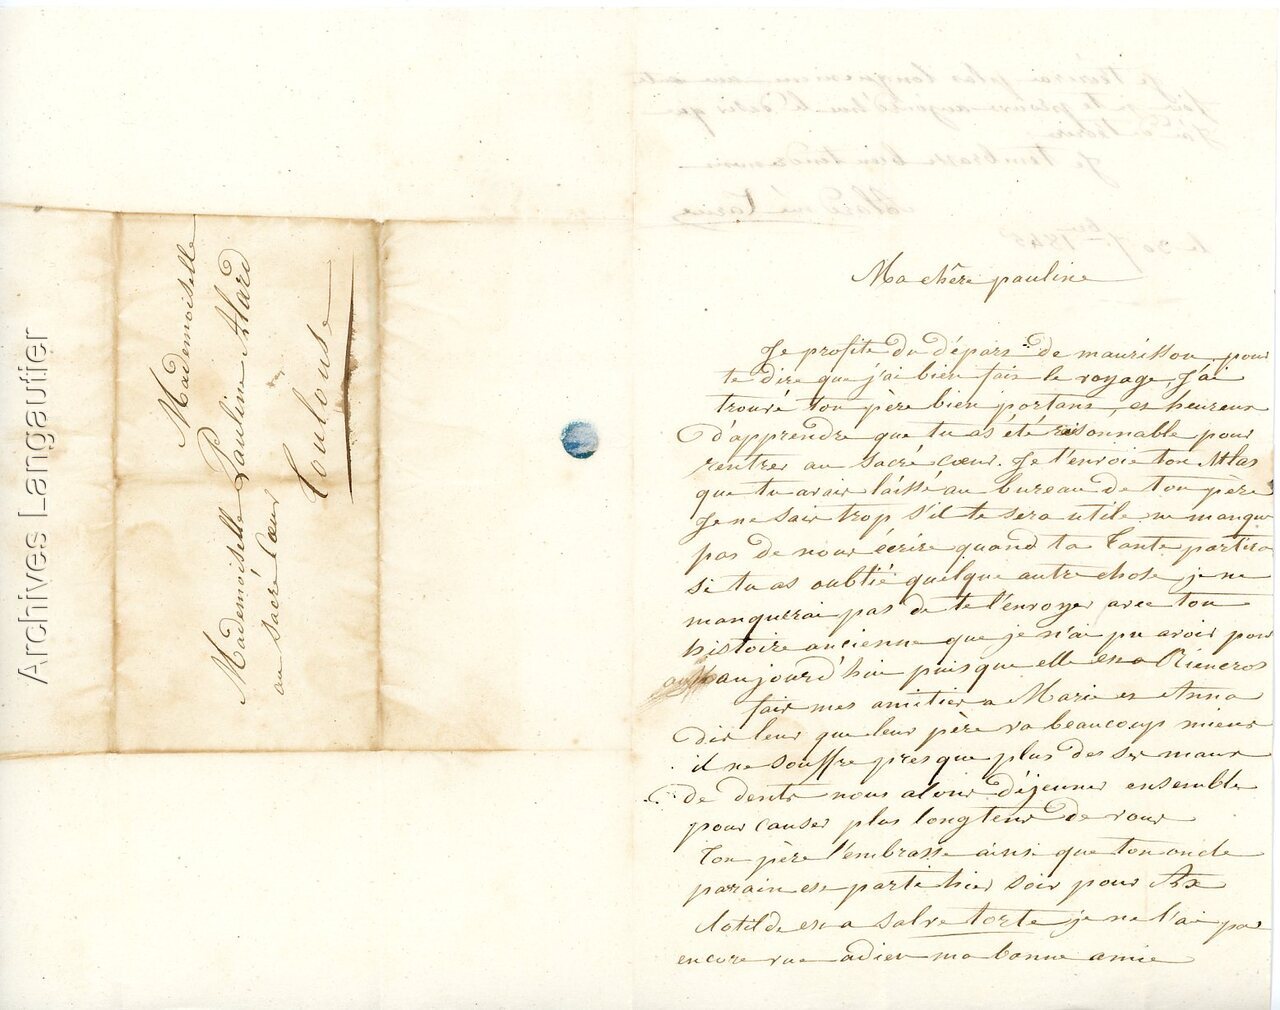 Archives Langautier
Mademoiselle
Mademoiselle Pauline Alard
au sacré Cœur
Toulouse
Ma chère pauline
Je profite du départ de maurisson pour
te dire que j'ai bien fait le voyage, J'ai
trouvé ton père bien portant, et heureux
d'apprendre que tu as été résonnable pour
rentrer au sacré cœur. Je t'envoie ton Atlas
que tu avais laissé au bureau de ton père
Je ne sais trop s'il te sera utile ne manque
pas de nous écrire quand ta Tante partira
si tu as oublié quelque autre chose je ne
manquerai pas de te l'envoyer avec ton
histoire ancienne que je n'ai pu avoir pour
aujourd'hui puis que elle est a Rieucros
fais mes amitiés a Marie et Anna
dis leur que leur père va beaucoup mieux
il ne souffre presque plus des ses maux
de dents nous alons déjeuner ensemble
pour causer plus longtems de vous
Ton père t'embrasse ainsi que ton oncle
parain est parti hier soir pour Ax
Clotilde est a salvetorte je ne l'ai pas
encore vue adieu ma bonne amie